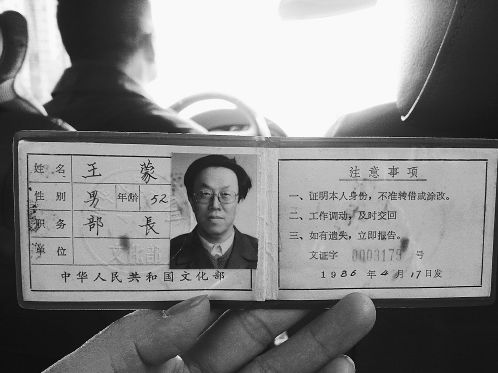 姓名 王蒙
性别 男 年龄 52
职务 部長
单位
中华人民共和国文化部
注意事项
一、证明本人身份，不准转借或涂改。
二、工作调动，及时交回
三、如有遗失，立即报告。
文证字 0003179 号
1986 年 4 月 17 日发